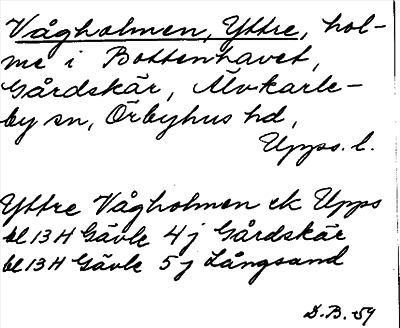 Vågholmen, Yttre, hol-
me i Bottenhavet,
Gårdskär, Älvkarle-
by sn, Örbyhus hd,
Upps. l.
Yttre Vågholmen ek Upps
bl 13H Gävle 4j Gårdskär
bl 13H Gävle 5j Långsand
D.B. -59